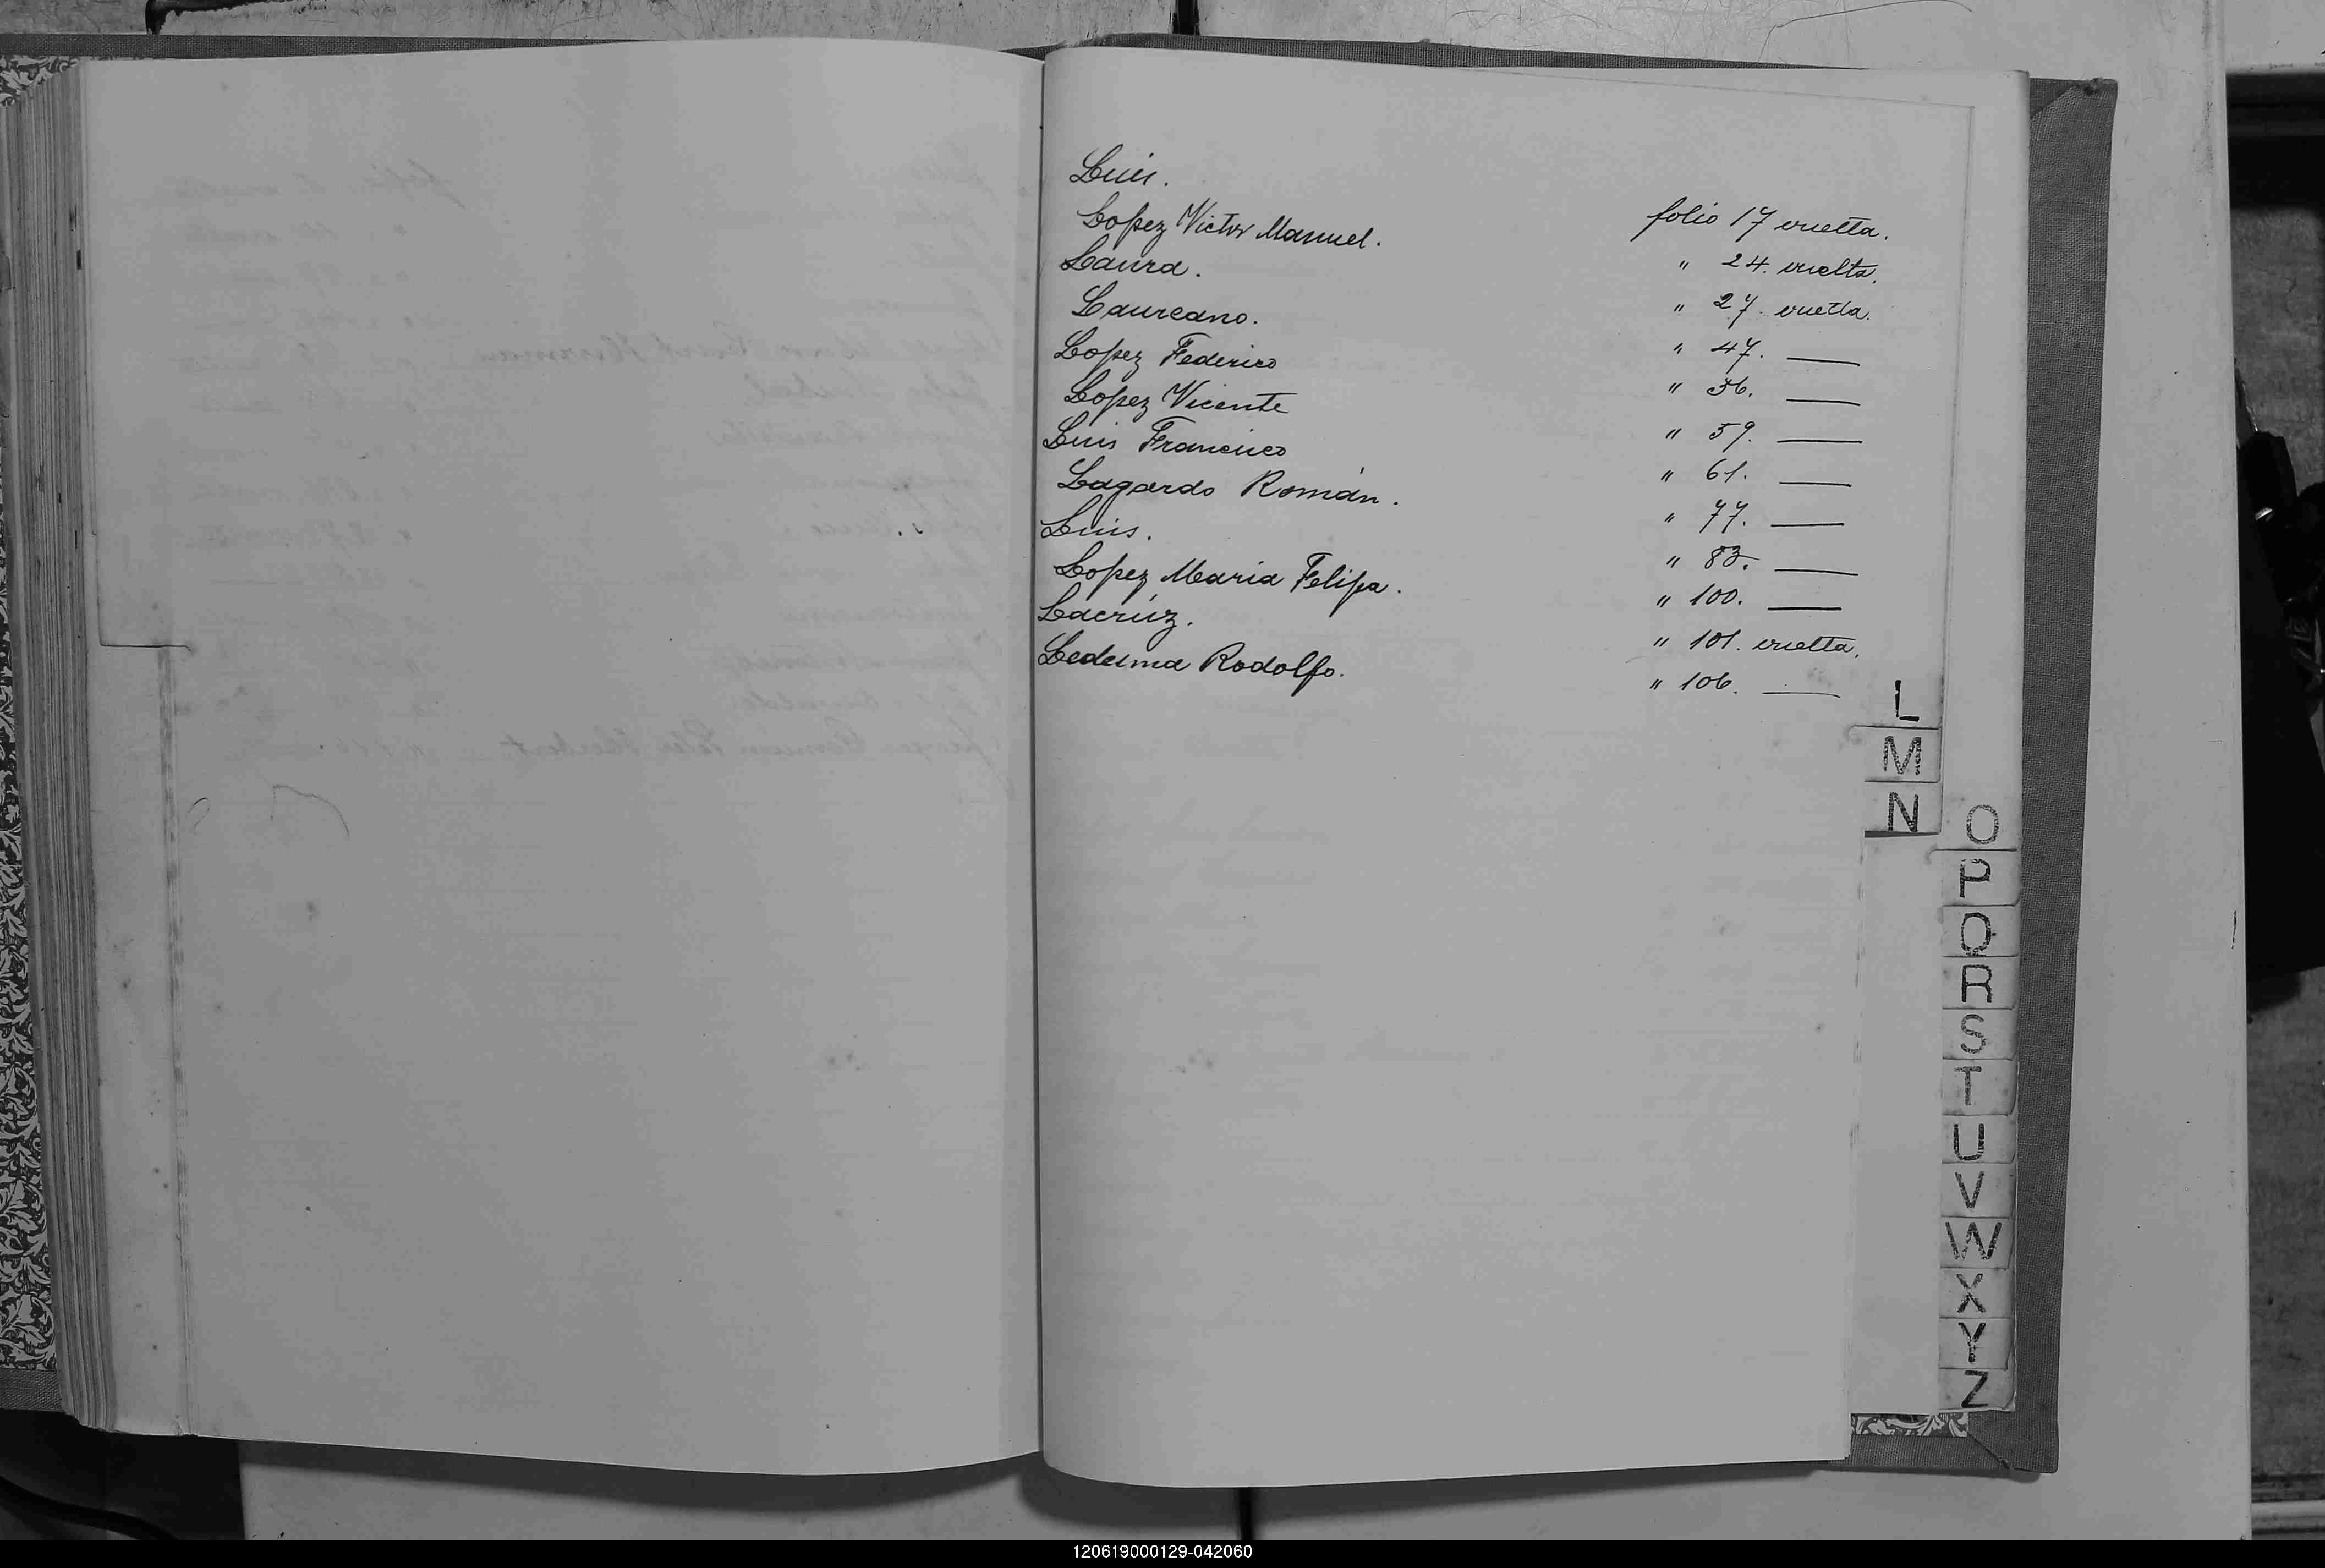 Luis. folio 17 vuelta.
Lopez Victor Manuel. " 24. vuelta.
Laura. " 27. vuelta.
Laureano. " 47. —
Lopez Federico " 56. —
Lopez Vicente " 59. —
Luis Francisco " 61. —
Lagardo Román. " 77. —
Luis. " 83. —
Lopez Maria Felipa. " 100. —
Lacrúz. " 101. vuelta.
Ledesma Rodolfo. " 106. —
L
M
N
O
P
Q
R
S
T
U
V
W
X
Y
Z
120619000129-042060